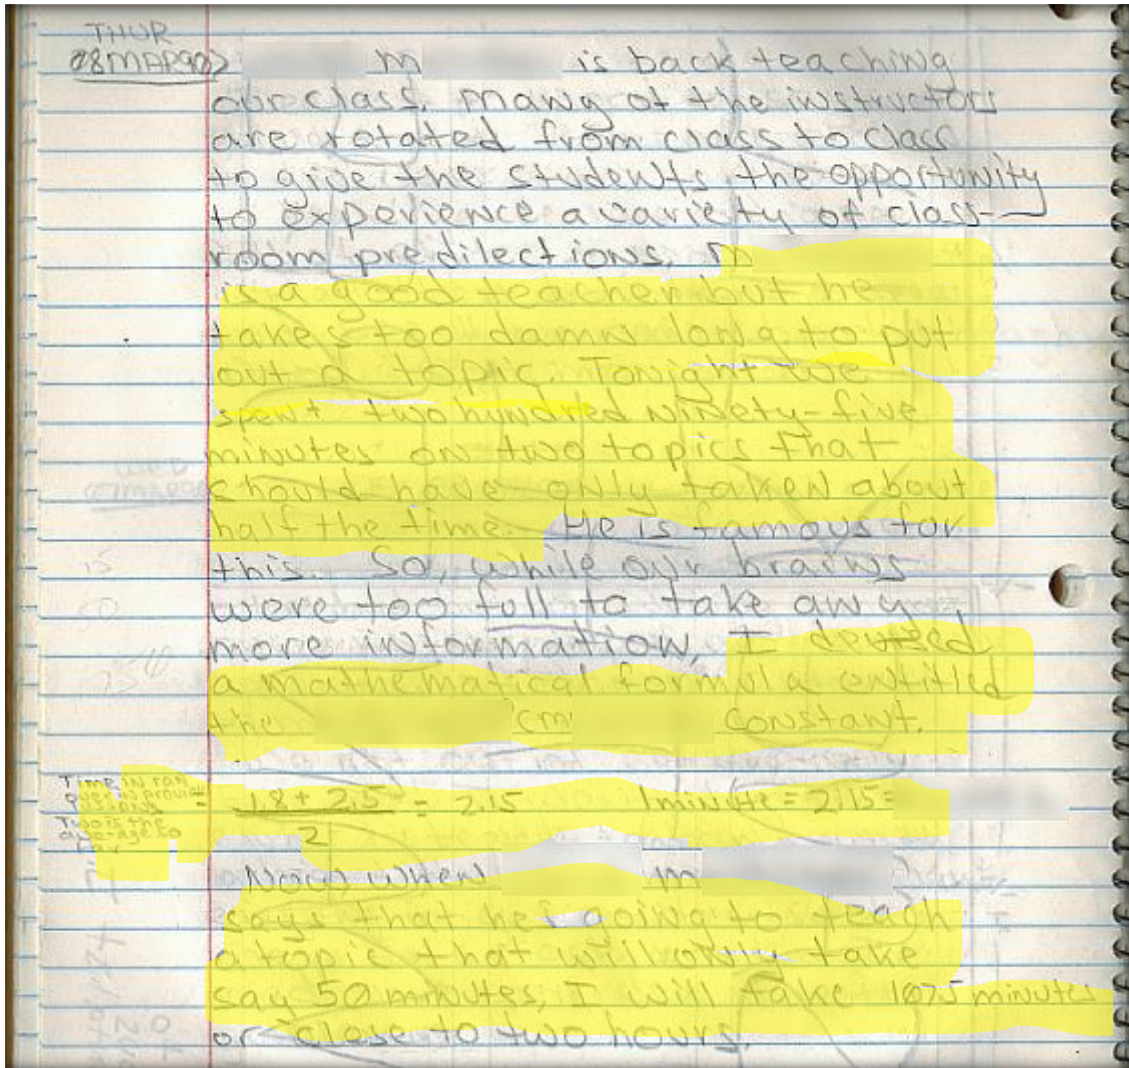 THUR
08MAR90> m is back teaching
our class. Many of the instructors
are rotated from class to class
to give the students the opportunity
to experience a variety of class-
room predilections. m
is a good teacher but he
takes too damn long to put
out a topic. Tonight we
spent two hundred ninety-five
minutes on two topics that
should have only taken about
half the time. He is famous for
this. So, while our brains
were too full to take any
more information, I devised
a mathematical formula entitled
the cm constant.
Time in ran
over in previous
= 1.8 + 2.5 = 2.15 1 minute = 2.15 =
Two is the
average so
far
2
Now when m
says that he's going to teach
a topic that will only take
say 50 minutes, I will take 107.5 minutes
or close to two hours.